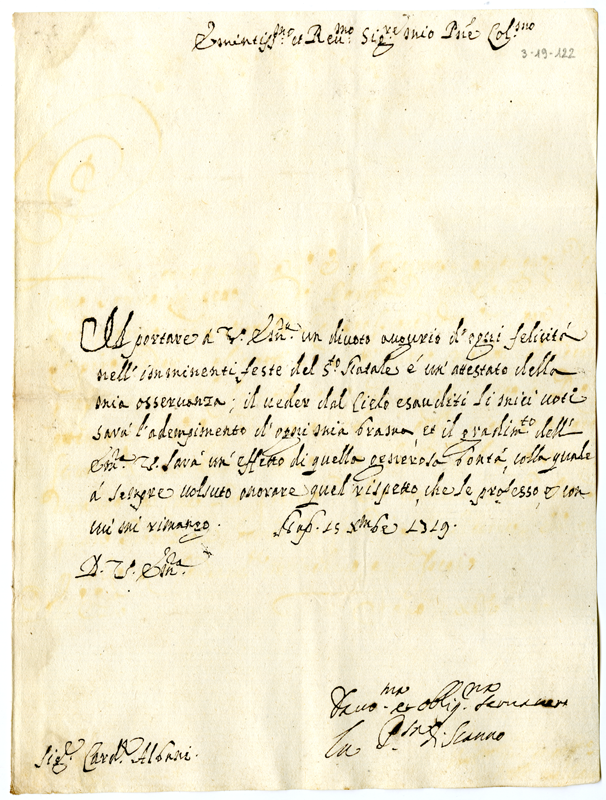 Eminentiss.mo et Reu.mo Sig.re mio Pñe Col.mo
3-19-122
Il portare à V. Em.a un diuoto augurio d'ogni felicità
nell'imminenti feste del S.to Natale é un attestato della
mia osseruanza; il ueder dal Cielo esauditi li miei uoti
sarà l'adempimento d'ogni mia brama, et il gradim.to dell'
Em.a V. sarà un'effetto di quella generosa bontà, colla quale
à sempre uolsuto onorare quel rispetto, che le professo, e con
cui mi rimango. Nap. 15 Xmbe 1719.
D. V. Em.a
Deuo.ma et oblig.ma
La P.ssa di Scanno
Sig.r Card.l Albani.